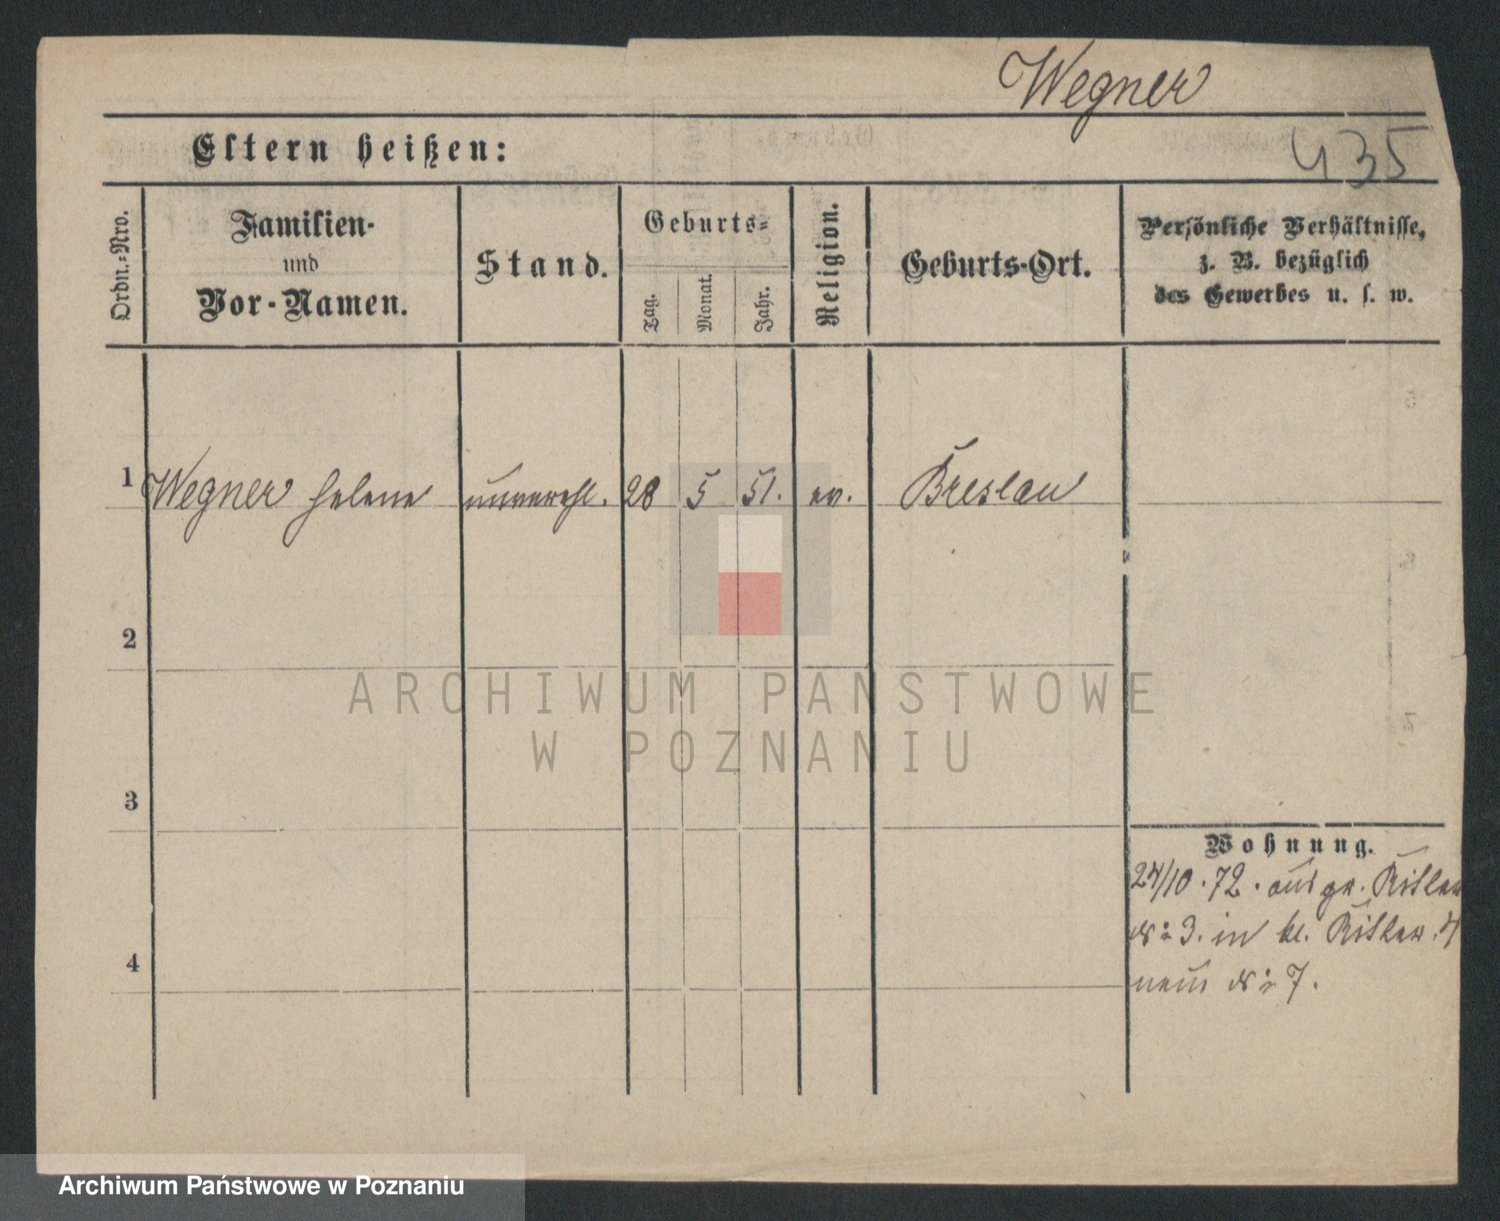 Wegner
435
Eltern heißen:
Ordn.-Nro.
Familien-
und
Vor-Namen.
Stand.
Geburts-
Tag.
Monat.
Jahr.
Religion.
Geburts-Ort.
Persönliche Verhältnisse,
z. B. bezüglich
des Gewerbes u. s. w.
1 Wegner Helene unverehl. 28 5 51. ev. Breslau
2
3
4
Wohnung.
24/10.72. aus gr. Ritter
3. in kl. Ritter
7.
ARCHIWUM PAŃSTWOWE
W POZNANIU
Archiwum Państwowe w Poznaniu